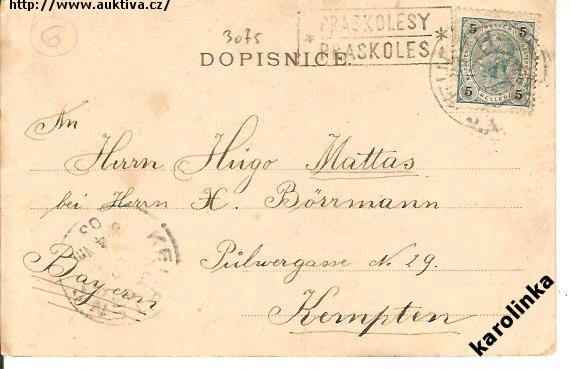 http://www.auktiva.cz/
6
3075
PRASKOLESY
* PRASKOLES *
DOPISNICE.
5 5
5 HELLER 5
An
Herrn Hugo Mattas
bei Herrn H. Börrmann
Pulvergasse N. 29.
Bayern
Kempten
karolinka